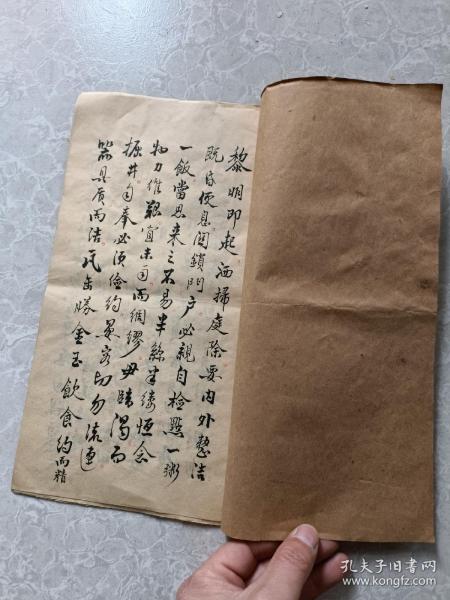 黎明即起洒掃庭除要内外整洁
既昏便息関鎖門户必親自檢點一粥
一飯當思来之不易半絲半缕恒念
物力维艱宜未雨而绸繆毋臨渴而
掘井自奉必须儉约宴客切勿流連
器具质而洁瓦缶勝金玉飲食约而精
孔夫子旧书网
www.kongfz.com